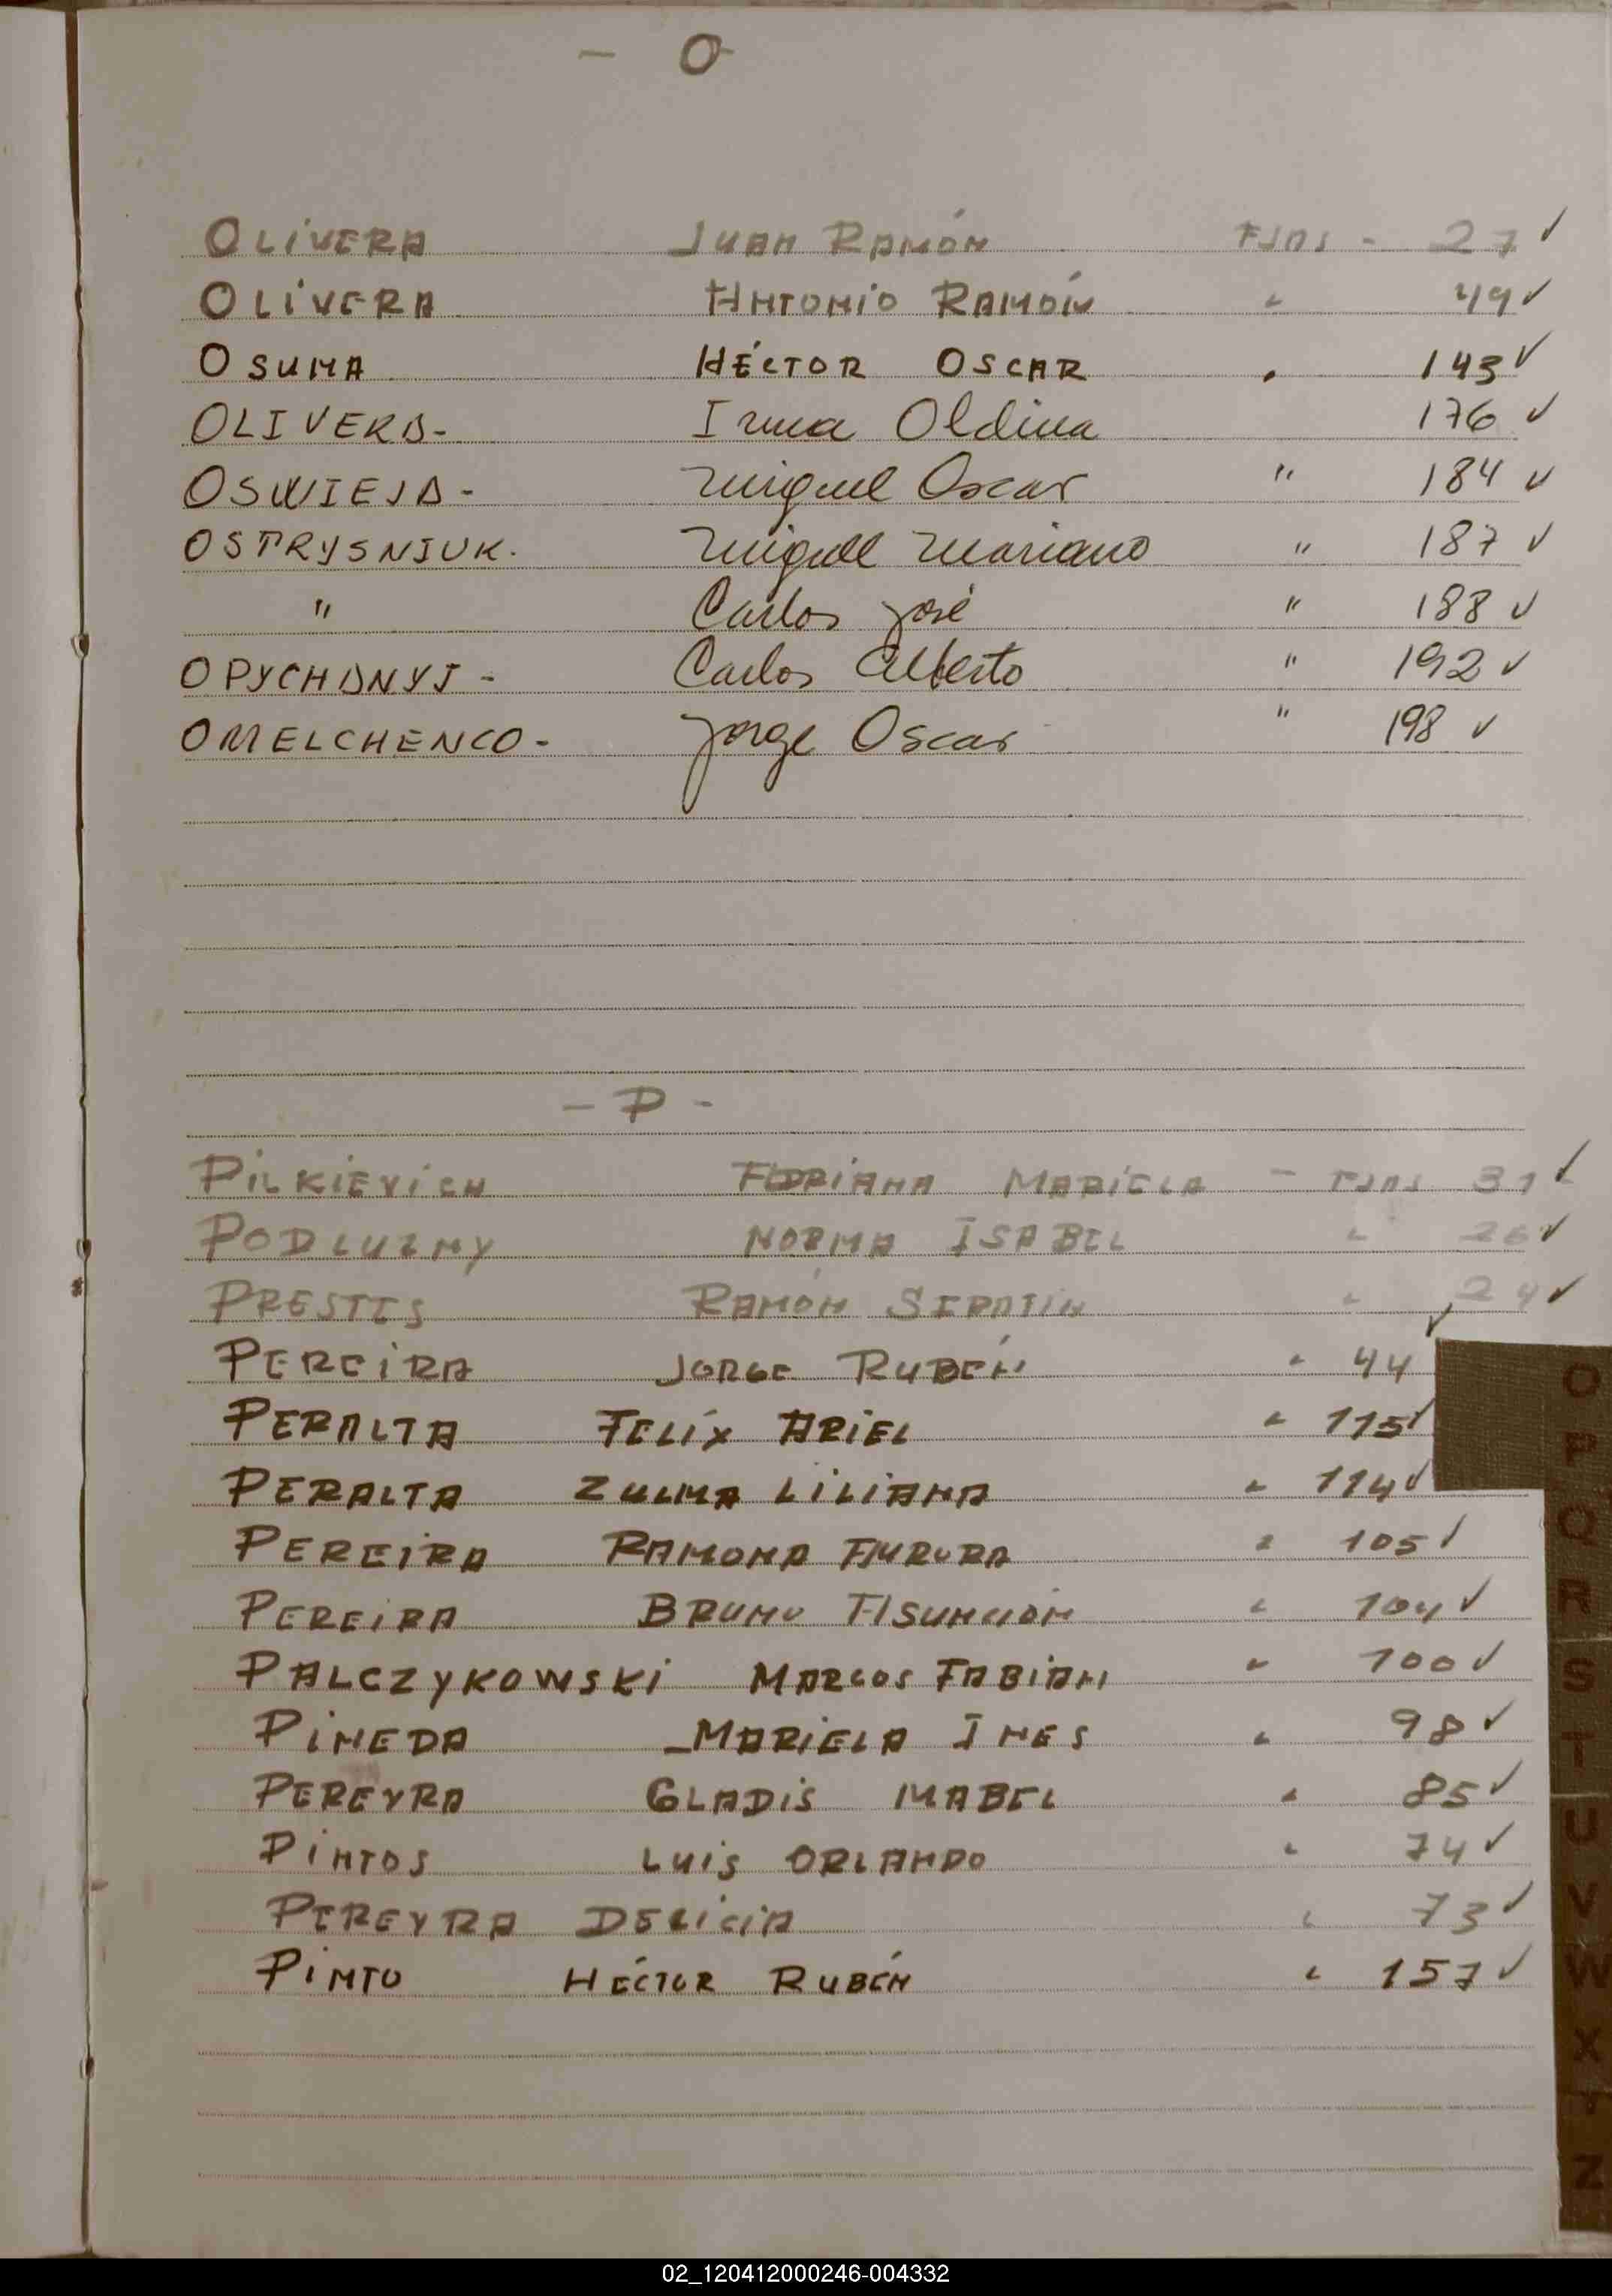 - O
OLIVERA JUAN RAMÓN FJAS - 27 ✓
OLIVERA ANTONIO RAMÓN " 49 ✓
OSUNA HÉCTOR OSCAR " 143 ✓
OLIVERA- Irma Oldina 176 ✓
OSWIEJA- Miguel Oscar " 184 ✓
OSTRYSNIUK. Miguel Mariano " 187 ✓
" Carlos José " 188 ✓
OPYCHANYJ- Carlos Alberto " 192 ✓
OMELCHENCO- Jorge Oscar " 198 ✓
- P -
PILKIEVICH ADRIANA MARIELA - FJAS 31 ✓
PODLUZNY NORMA ISABEL " 26 ✓
PRESTES RAMÓN SERATIN " 24 ✓
PEREIRA JORGE RUBÉN " 44 ✓
PERALTA FELÍX ARIEL " 115 ✓
PERALTA ZULMA LILIANA " 114 ✓
PEREIRA RAMONA AURORA " 105 ✓
PEREIRA BRUNO ASUNCIÓN " 104 ✓
PALCZYKOWSKI MARCOS FABIAN " 100 ✓
PINEDA MARIELA INES " 98 ✓
PEREYRA GLADIS MABEL " 85 ✓
PINTOS LUIS ORLANDO " 74 ✓
PEREYRA DELICIA " 73 ✓
PINTO HÉCTOR RUBÉN " 157 ✓
O
P
Q
R
S
T
U
V
W
X
Y
Z
02_120412000246-004332